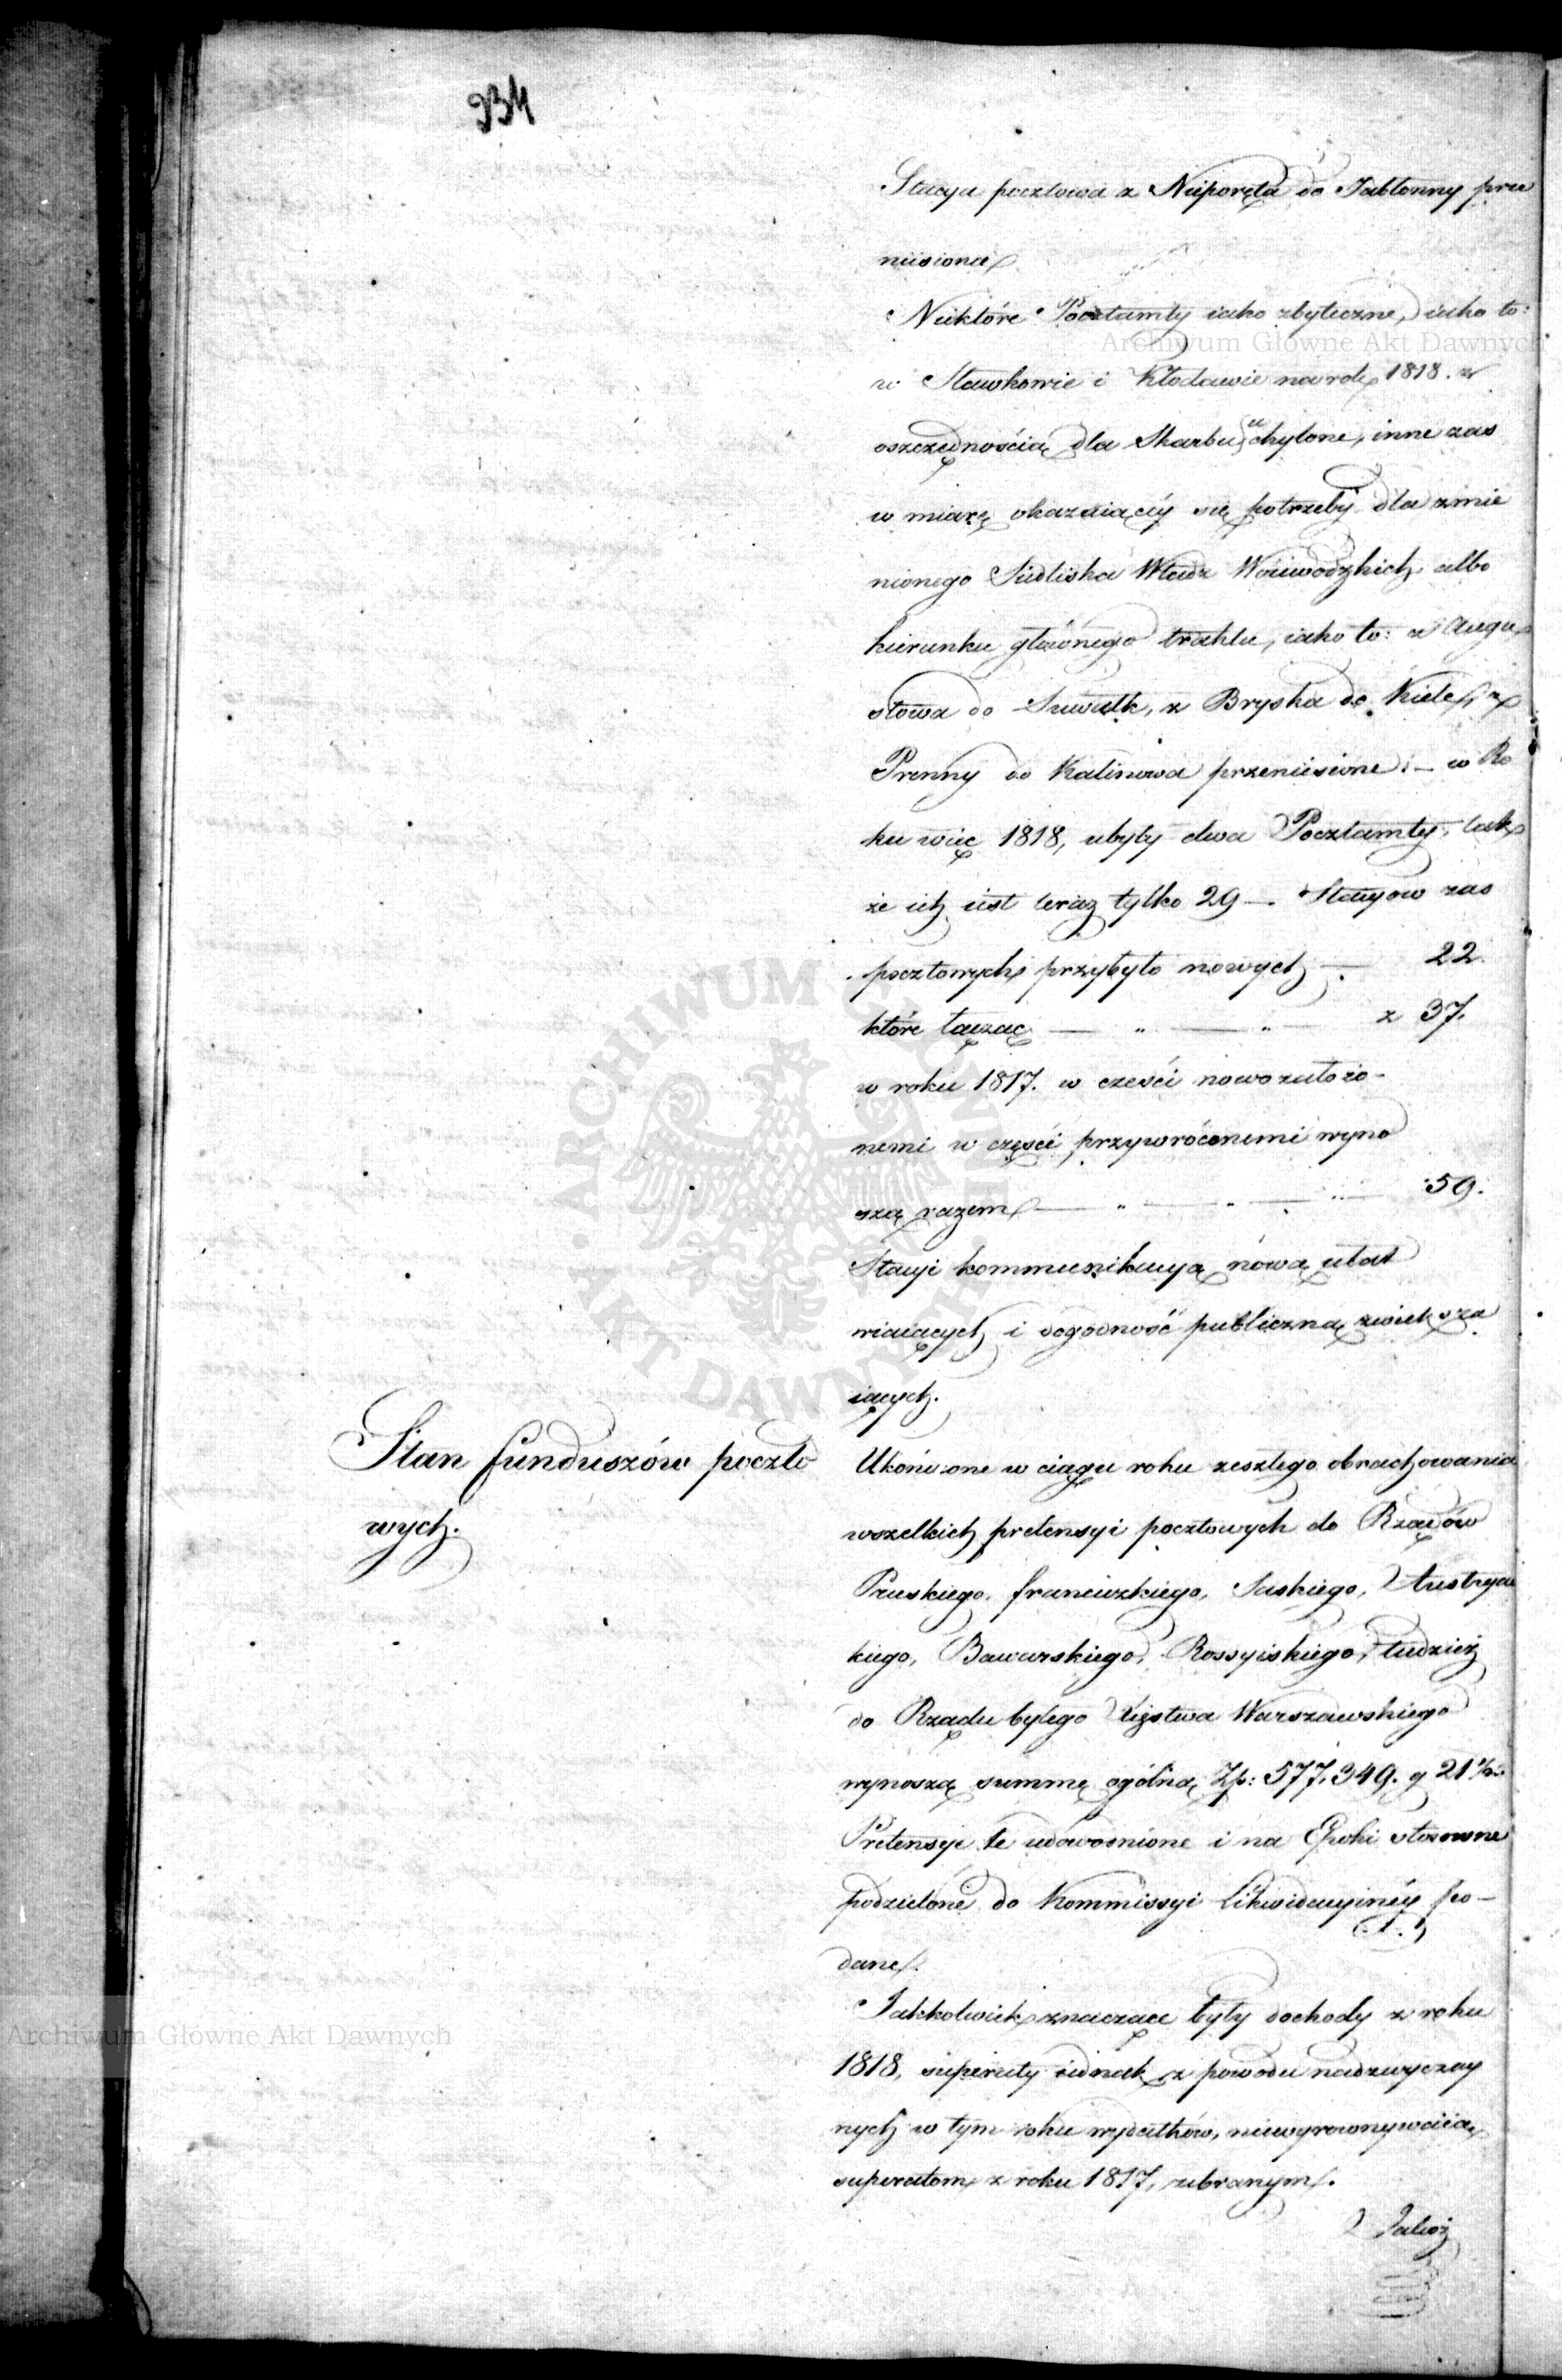 934
Stacya pocztowa z Nieporęta do Jabłonny prze
niesiona
Niektóre Pocztamty iako zbyteczne, iako to:
w Sławkowie i Kłodawie na rok 1818. z
oszczędnością dla Skarbu uchylone, inne zas
w miarę okazuiącéy się potrzeby dla zmie
nionego Siedliska Władz Woiewodzkich albo
kierunku głównego traktu, iako to: z Augu
stowa do Suwałk, z Bryska do Kielc, z
Prenny do Kalinowa przeniesione: – w Ro
ku więc 1818, ubyły dwa Pocztamty, tak
że ich iest teraz tylko 29 –. Stacyow zas
pocztowych przybyło nowych — . 22.
które łącząc — „ — „ — z 37.
w roku 1817. w czesći nowozałożo-
nemi w częsci przywróconemi wyno
szą razem — „ — „ — „ — 59.
Stacyi kommunikacyą nową ułat
wiaiących i dogodność publiczną zwieksza
iących.
Stan funduszów poczto
wych.
Ukończone w ciągu roku zeszłego obrachowania
wszelkich pretensyi pocztowych do Rządów
Pruskiego, francuzkiego, Saskiego, Austryac
kiego, Bawarskiego, Rossyiskiego, tudzież
do Rządu byłego Xięstwa Warszawskiego
wynoszą summę ogólną Zp: 577,349. g 21
Pretensye te udowodnione i na Epoki stosowne
podzielone do Kommissyi Likwidacyinéy po-
dane.
Jakkolwiek znaczące były dochody z roku
1818, superaty iednak z powodu nadzwyczay
nych w tym roku wydatków, niewyrownywaią
superatom z roku 1817, zebranym.
Jakoż
Archiwum Główne Akt Dawnych
Archiwum Główne Akt Dawnych
ARCHIWUM GŁÓWNE AKT DAWNYCH